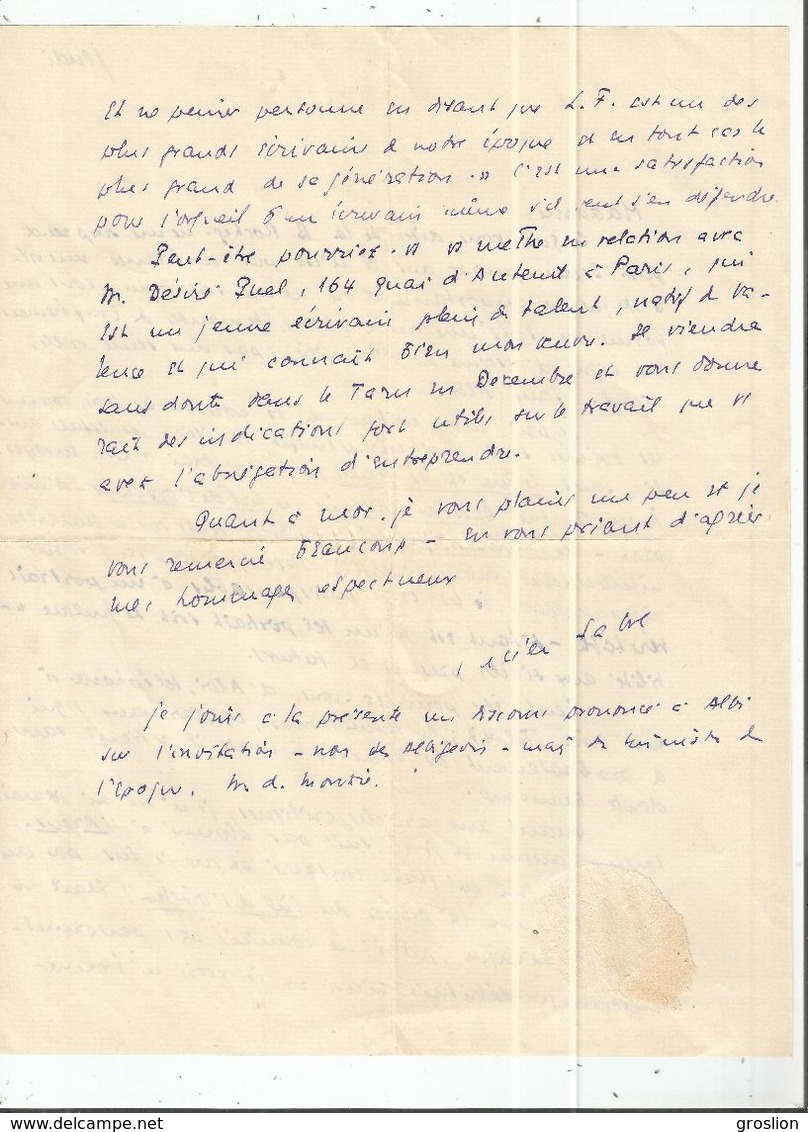 Et ne peiner personne en disant que L. F. est un des
plus grands écrivains de notre époque et en tout cas le
plus grand de sa génération. » C'est une satisfaction
pour l'orgueil d'un écrivain même s'il veut s'en défendre.
Peut-être pourriez-vs vs mettre en relation avec
M. Désiré Ruel, 164 quai d'Auteuil à Paris, qui
est un jeune écrivain plein de talent, natif de Va-
lence et qui connaît bien mon œuvre. Il viendra
sans doute dans le Tarn en Décembre et vous donne
rait des indications fort utiles sur le travail que vs
avez l'abnégation d'entreprendre.
Quant à moi, je vous plains un peu et je
vous remercie beaucoup - en vous priant d'agréer
mes hommages respectueux
je joins à la présente un discours prononcé à Albi
sur l'invitation - non des Albigeois - mais du ministre de
l'époque, M. de Monzie.
groslion